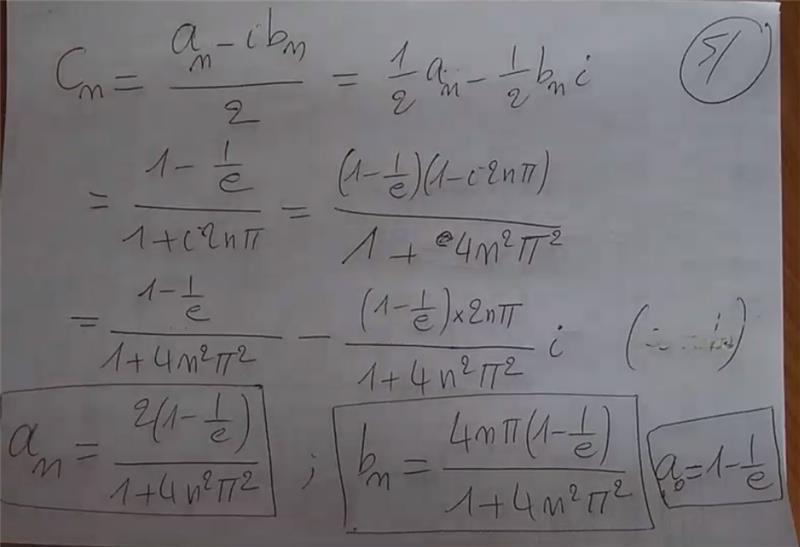 Cₙ = (aₙ - ibₙ)/2 = 1/2 aₙ - 1/2 bₙ i
5/
= (1 - 1/e)/(1 + i2nπ) = (1 - 1/e)(1 - i2nπ)/(1 + 4n²π²)
= (1 - 1/e)/(1 + 4n²π²) - (1 - 1/e)×2nπ/(1 + 4n²π²) i
aₙ = 2(1 - 1/e)/(1 + 4n²π²) ; bₙ = 4nπ(1 - 1/e)/(1 + 4n²π²) a₀ = 1 - 1/e